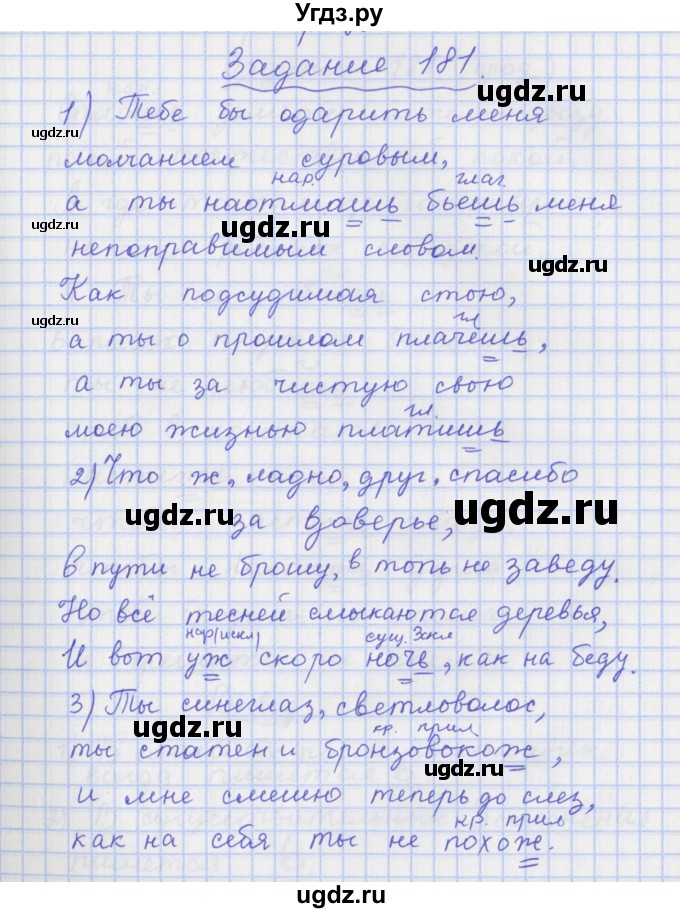 Угдз.ру
Задание 181.
1) Тебе бы одарить меня
ugdz.ru
молчанием суровым,
нар. глаг.
а ты наотмашь бьешь меня
ugdz.ru ugdz.ru
непоправимым словом.
ugdz.ru
Как подсудимая стою,
ugdz.ru
гл
а ты о прошлом плачешь,
а ты за чистую свою
гл.
моею жизнью платишь
2) Что ж, ладно, друг, спасибо
ugdz.ru ugdz.ru
за доверье,
в пути не брошу, в топь не заведу.
Но всё тесней смыкаются деревья,
нар(искл) сущ. 3скл
И вот уж скоро ночь, как на беду.
3) Ты синеглаз, светловолос,
ugdz.ru
кр. прил
ты статен и бронзовокож,
ugdz.ru
и мне смешно теперь до слез,
кр. прил
как на себя ты не похож.
ugdz.ru
ugdz.ru